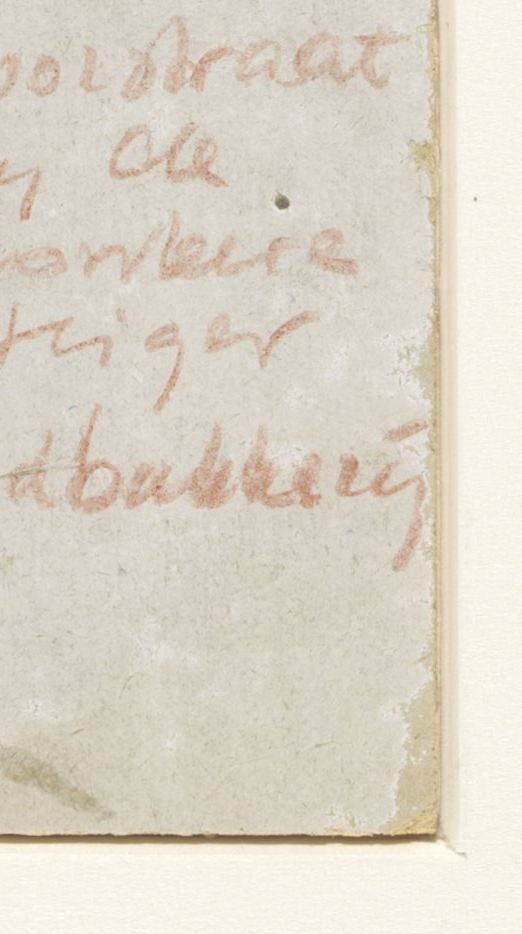 oorstraat
y de
teiger
dbakkerij